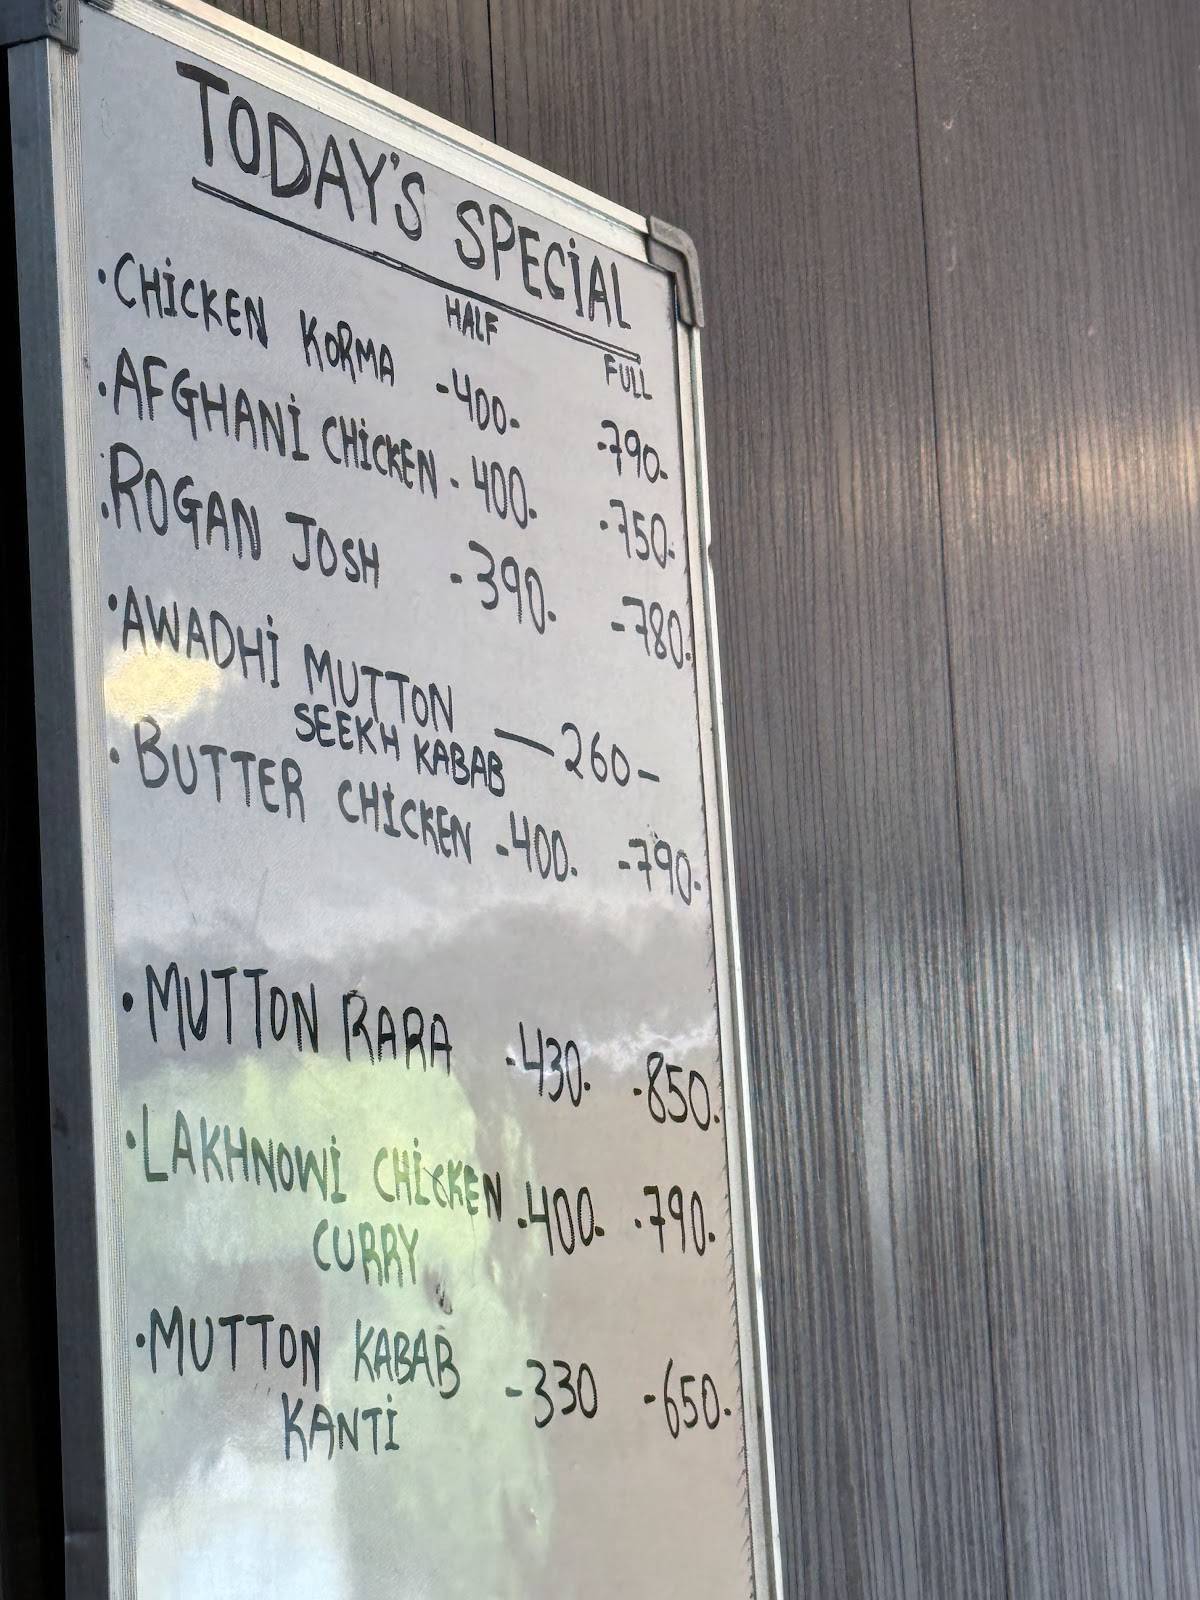 TODAY'S SPECIAL
HALF FULL
·CHiCKEN KORMA -400- -790-
·AFGHANi CHiCKEN -400- -750-
·ROGAN JOSH -390- -780-
·AWADHi MUTTON
SEEKH KABAB —260-
·BUTTER CHiCKEN -400- -790-
·MUTTON RARA -430- -850-
·LAKHNOWi CHiCKEN -400- -790-
CURRY
·MUTTON KABAB -330 -650-
KANTi